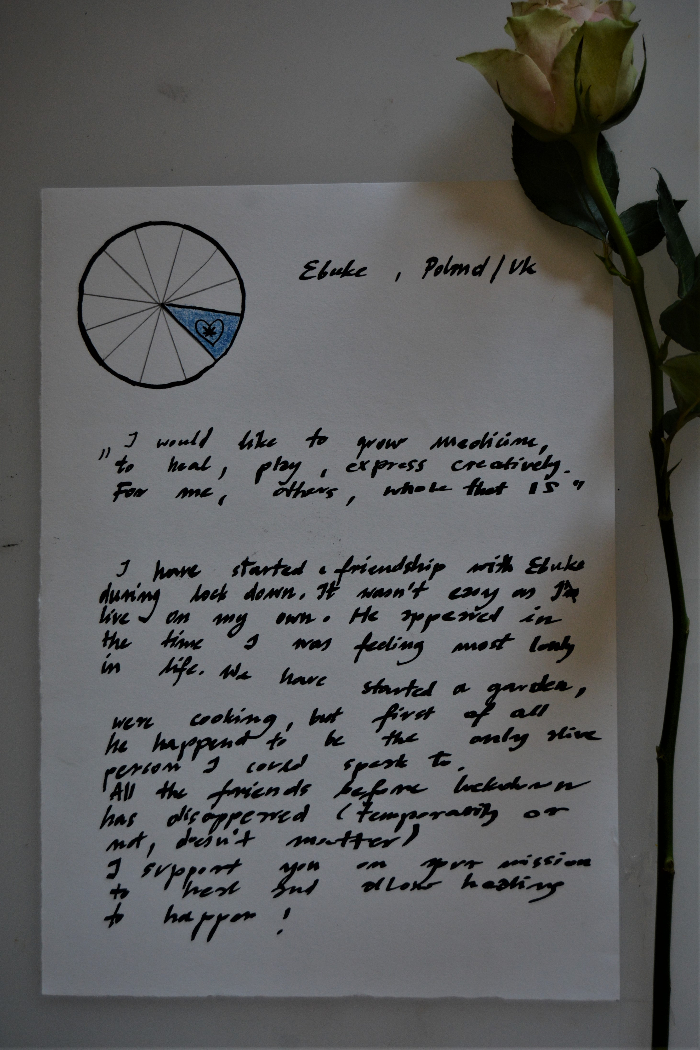 Ebuke , Polmd/Uk
„ I would like to grow medicine,
to heal, play, express creatively.
For me, others, whole that IS "
I have started a friendship with Ebuke
during lock down. It wasn't easy as I'm
live on my own. He appered in
the time I was feeling most lonly
in life. We have started a garden,
were cooking, but first of all
he happend to be the only alive
person I could speak to.
All the friends before lockdown
has disappered (temporarily or
not, doesn't matter)
I support you on your mission
to heal and allow healing
to happen !